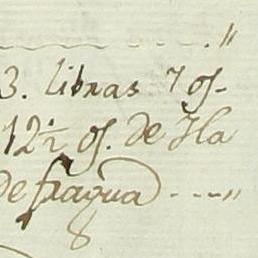 3. libras 7 os.
12½ os. de Ila
de fragua
8